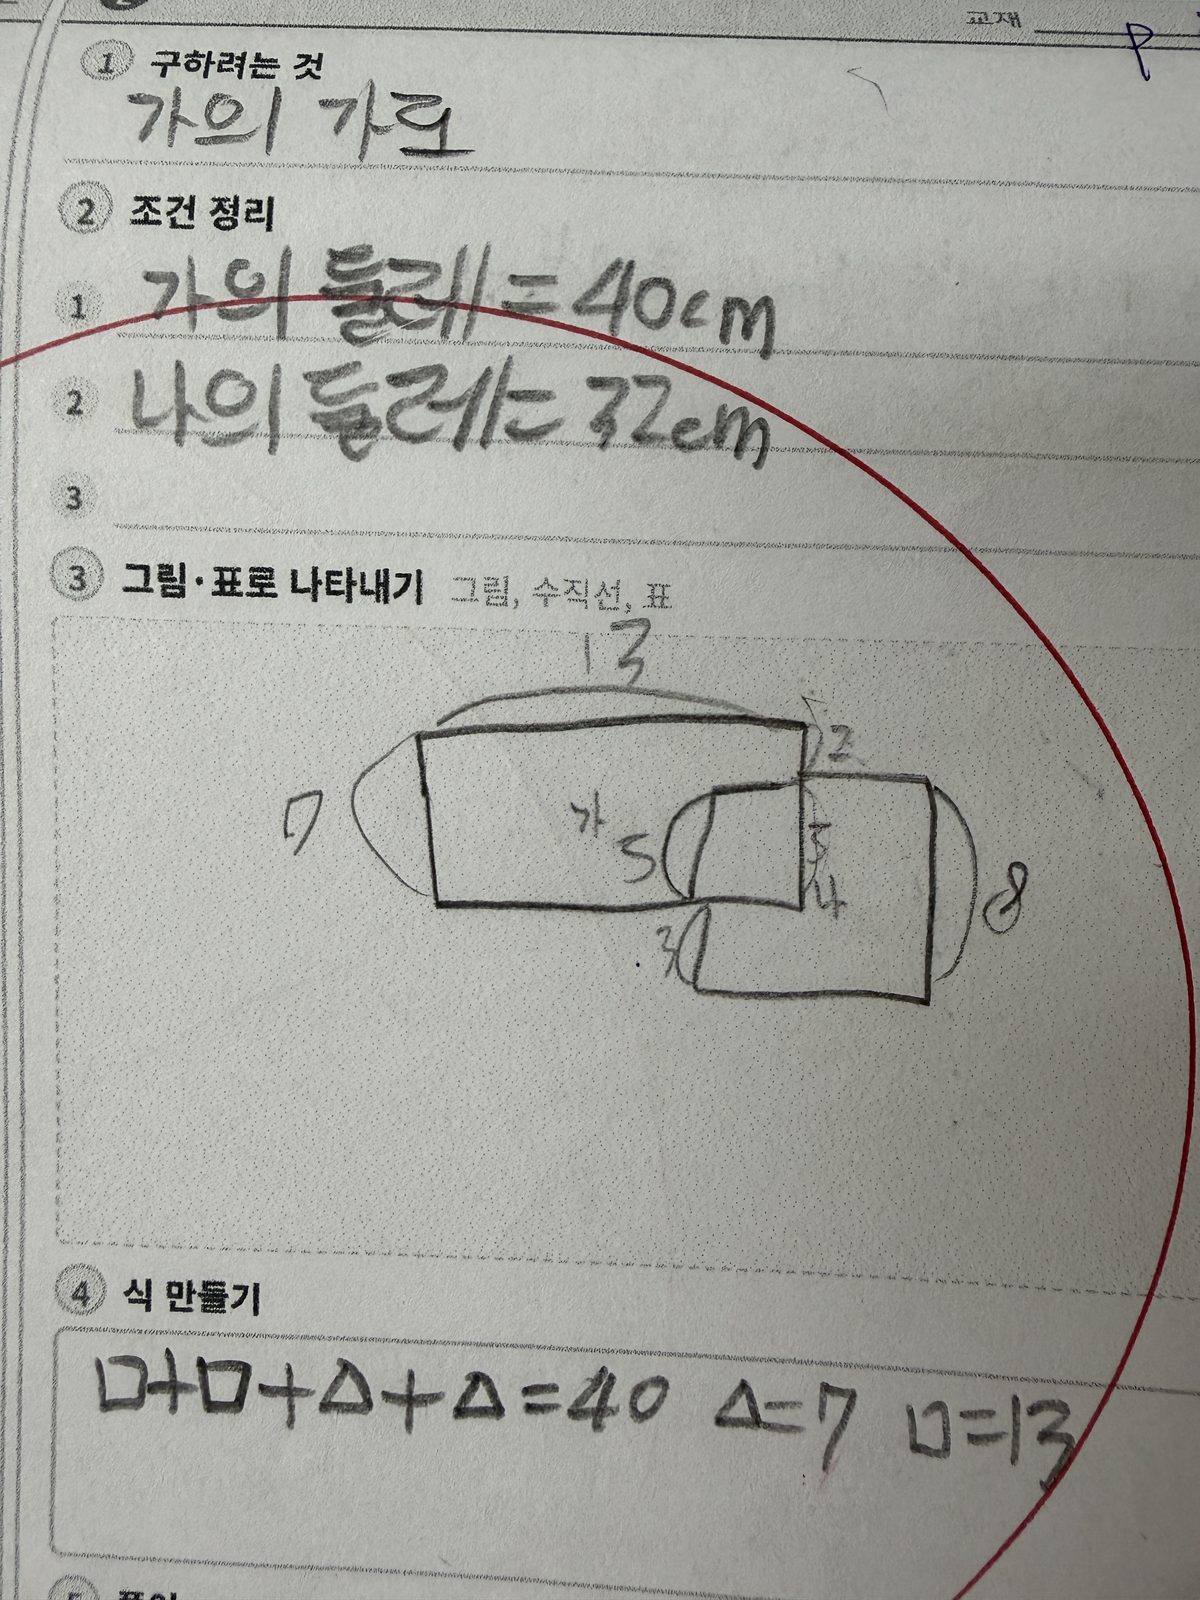 교재
P
1 구하려는 것
가의 가로
2 조건 정리
1 가의 둘레=40cm
2 나의 둘레=32cm
3
3 그림·표로 나타내기 그림, 수직선, 표
13
2
7
가
5
5
4
8
3
4 식 만들기
□+□+△+△=40 △=7 □=13